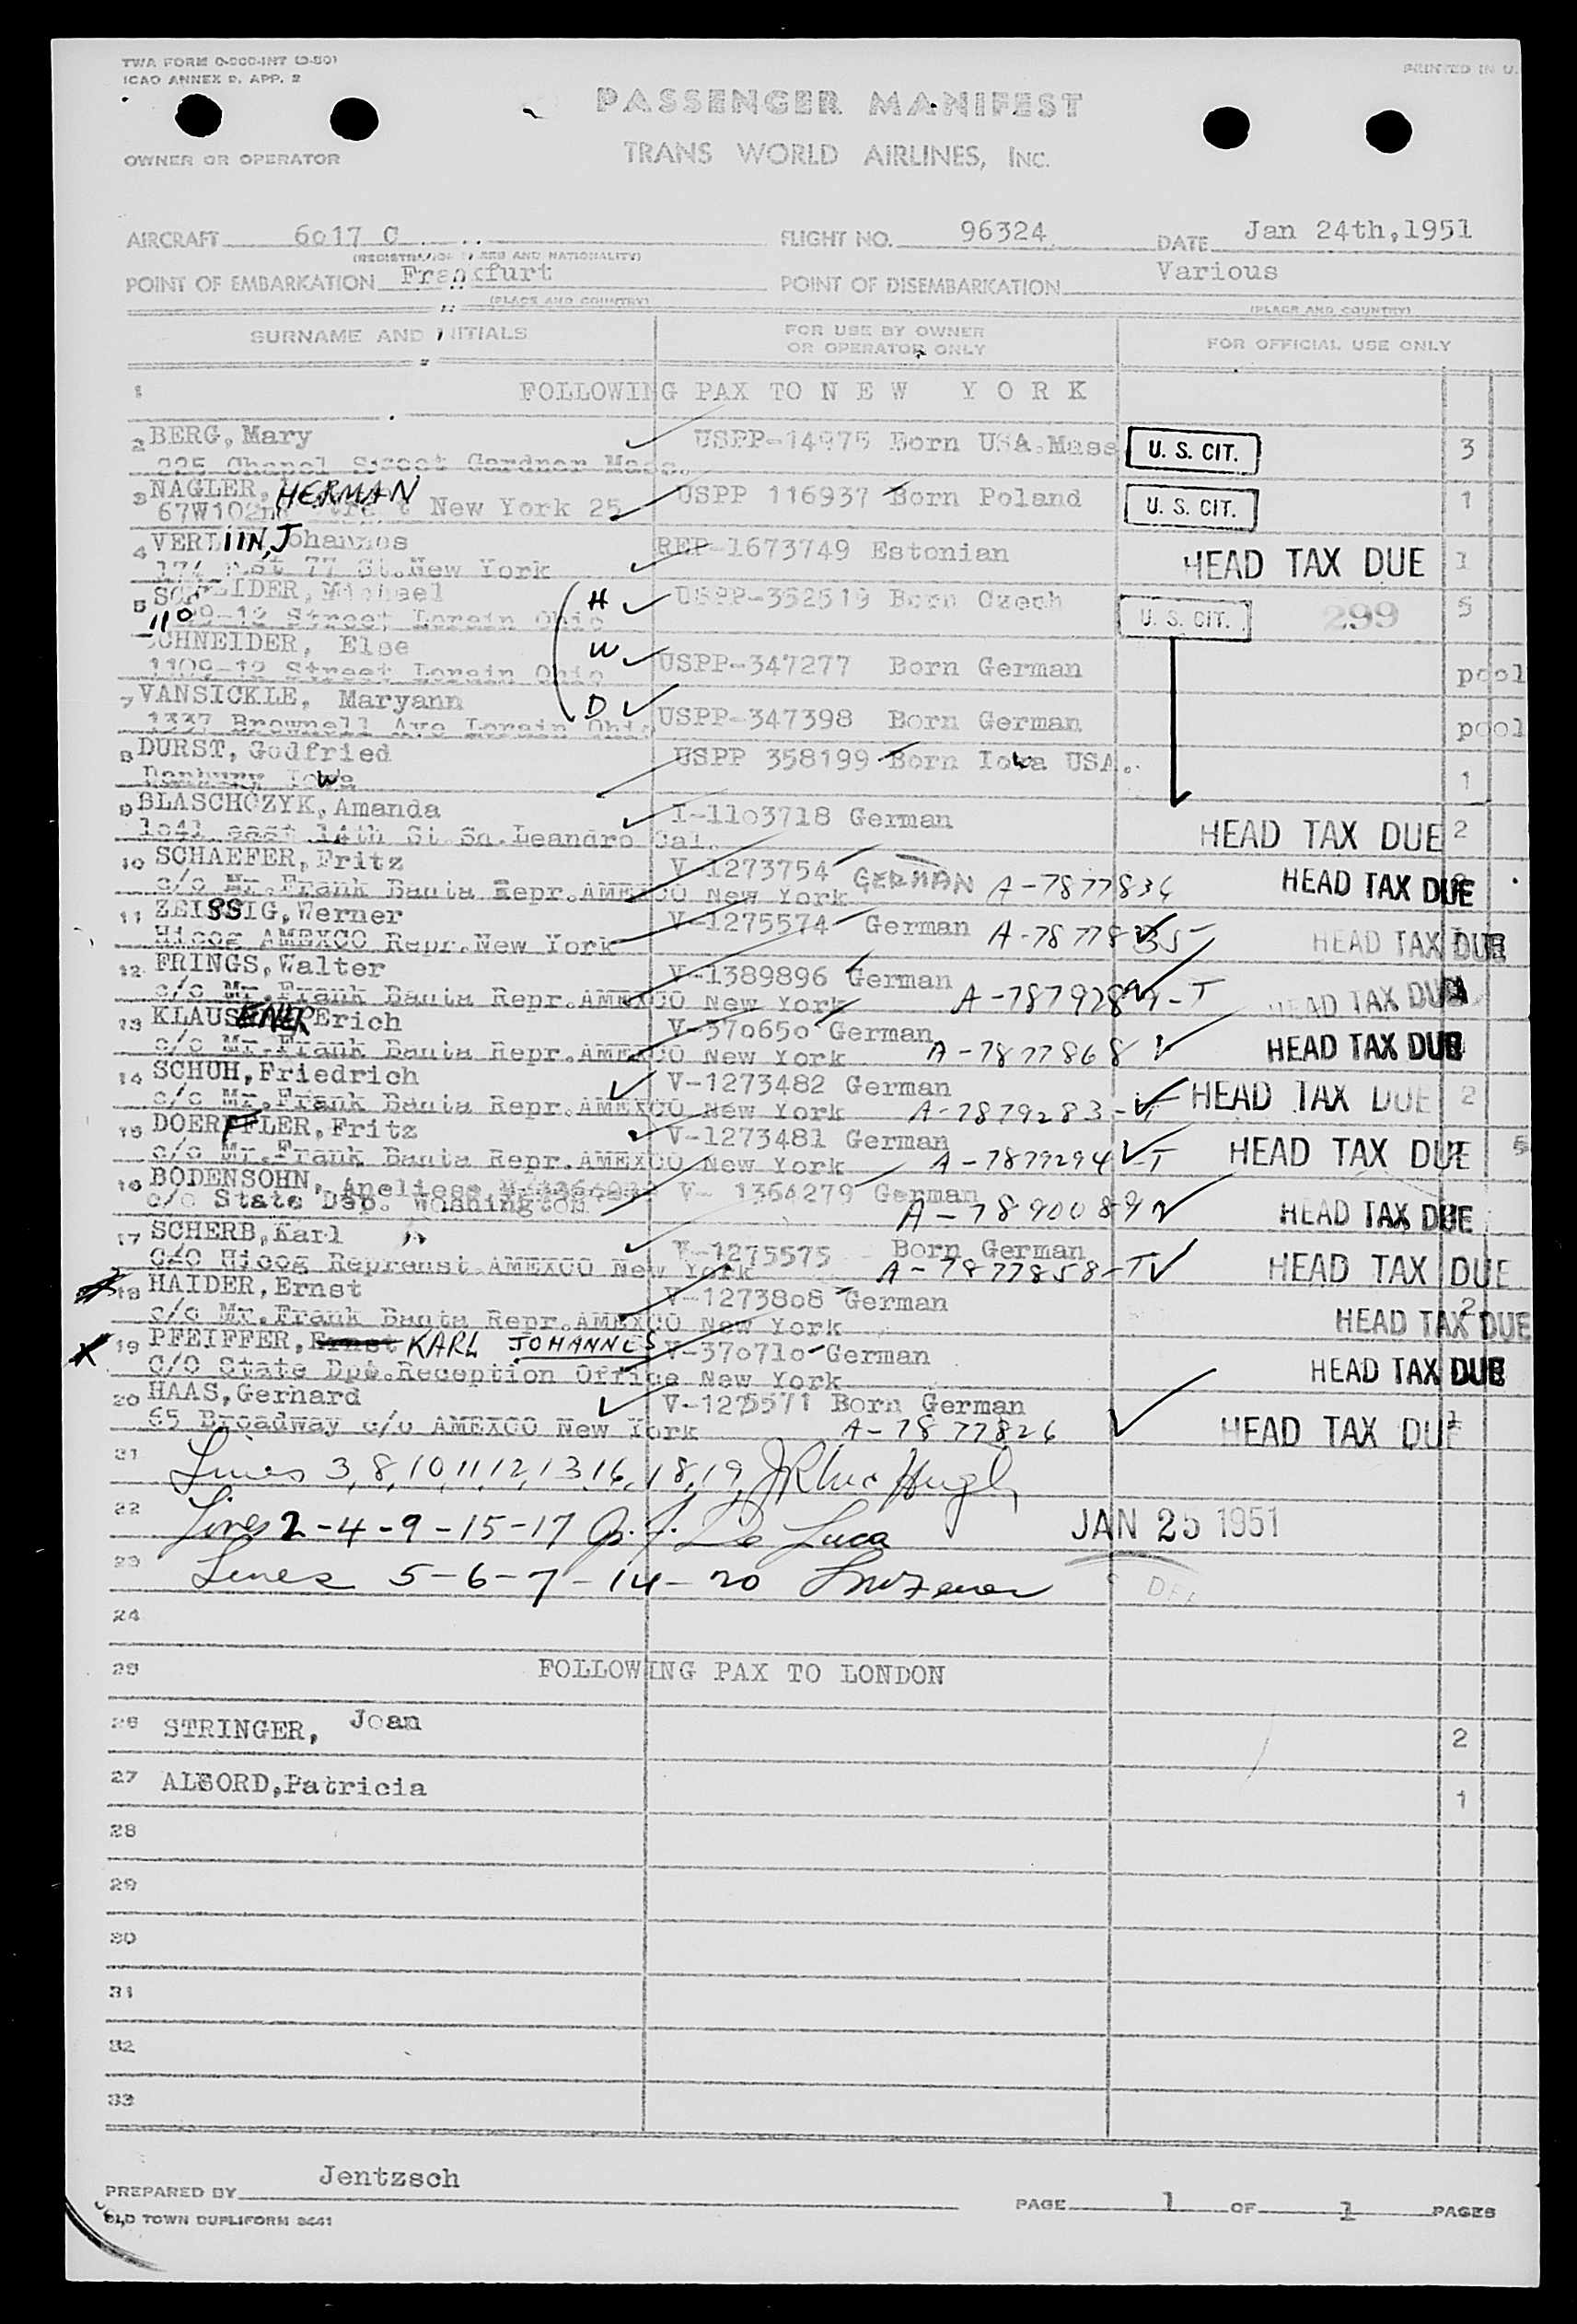 TWA FORM
ICAO ANNEX 9. APP. 2
PRINTED IN U.
PASSENGER MANIFEST
OWNER OR OPERATOR
TRANS WORLD AIRLINES, INC.
AIRCRAFT 6017 C FLIGHT NO. 96324 DATE Jan 24th,1951
(REGISTRATION MARKS AND NATIONALITY)
POINT OF EMBARKATION Frankfurt POINT OF DISEMBARKATION Various
(PLACE AND COUNTRY) (PLACE AND COUNTRY)
SURNAME AND INITIALS FOR USE BY OWNER OR OPERATOR ONLY FOR OFFICIAL USE ONLY
1 FOLLOWING PAX TO N E W Y O R K
2 BERG, Mary USPP-14975 Born USA.Mass U. S. CIT. 3
225 Chapel Street Gardner Mass.
3 NAGLER, HERMAN USPP 116937 Born Poland U. S. CIT. 1
67W102nd Street New York 25
4 VERLIIN, Johannes REP-1673749 Estonian HEAD TAX DUE 1
174 East 77 St.New York
5 SCHNEIDER, Michael H USPP-352519 Born Czech U. S. CIT. 299 5
1109-12 Street Lorain Ohio
SCHNEIDER, Else W USPP-347277 Born German pool
1109-12 Street Lorain Ohio
7 VANSICKLE, Maryann D USPP-347398 Born German pool
1337 Brownell Ave Lorain Ohio
8 DURST, Godfried USPP 358199 Born Iowa USA. 1
Danbury Iowa
9 BLASCHCZYK, Amanda I-1103718 German HEAD TAX DUE 2
1041 east 14th St Sn.Leandro Cal.
10 SCHAEFER, Fritz V-1273754 GERMAN A-7877836 HEAD TAX DUE
c/o Mr.Frank Banta Repr.AMEXCO New York
11 ZEISSIG, Werner V-1275574 German A-7877835 HEAD TAX DUE
Hicog AMEXCO Repr.New York
12 FRINGS, Walter V-1389896 German A-7879289-T HEAD TAX DUE
c/o Mr.Frank Banta Repr.AMEXCO New York
13 KLAUSENER Erich V-370650 German A-7877868 HEAD TAX DUE
c/o Mr.Frank Banta Repr.AMEXCO New York
14 SCHUH, Friedrich V-1273482 German A-7879283-T HEAD TAX DUE 2
c/o Mr.Frank Banta Repr.AMEXCO New York
15 DOERFFLER, Fritz V-1273481 German A-7879294-T HEAD TAX DUE 5
c/o Mr.Frank Banta Repr.AMEXCO New York
16 BODENSOHN, Aneliese V- 1364279 German A-7890089 HEAD TAX DUE
c/o State Dep. Washington
17 SCHERB, Karl V-1275575 Born German A-7877858-T HEAD TAX DUE
C/O Hicog Represnt.AMEXCO New York
18 HAIDER, Ernst V-1273808 German HEAD TAX DUE 2
c/o Mr.Frank Banta Repr.AMEXCO New York
19 PFEIFFER, Ernst KARL JOHANNES V-370710 German HEAD TAX DUE
C/O State Dpt.Reception Office New York
20 HAAS, Gerhard V-1275571 Born German A-7877826 HEAD TAX DUE 1
65 Broadway c/o AMEXCO New York
21 Lines 3,8,10,11,12,13,16,18,19,
22 Lines 2-4-9-15-17 De Luca JAN 25 1951
23 Lines 5-6-7-14-20
24
25 FOLLOWING PAX TO LONDON
26 STRINGER, Joan 2
27 ALSORD,Patricia 1
28
29
30
31
32
33
PREPARED BY Jentzsch PAGE 1 OF 1 PAGES
OLD TOWN DUPLIFORM 2441